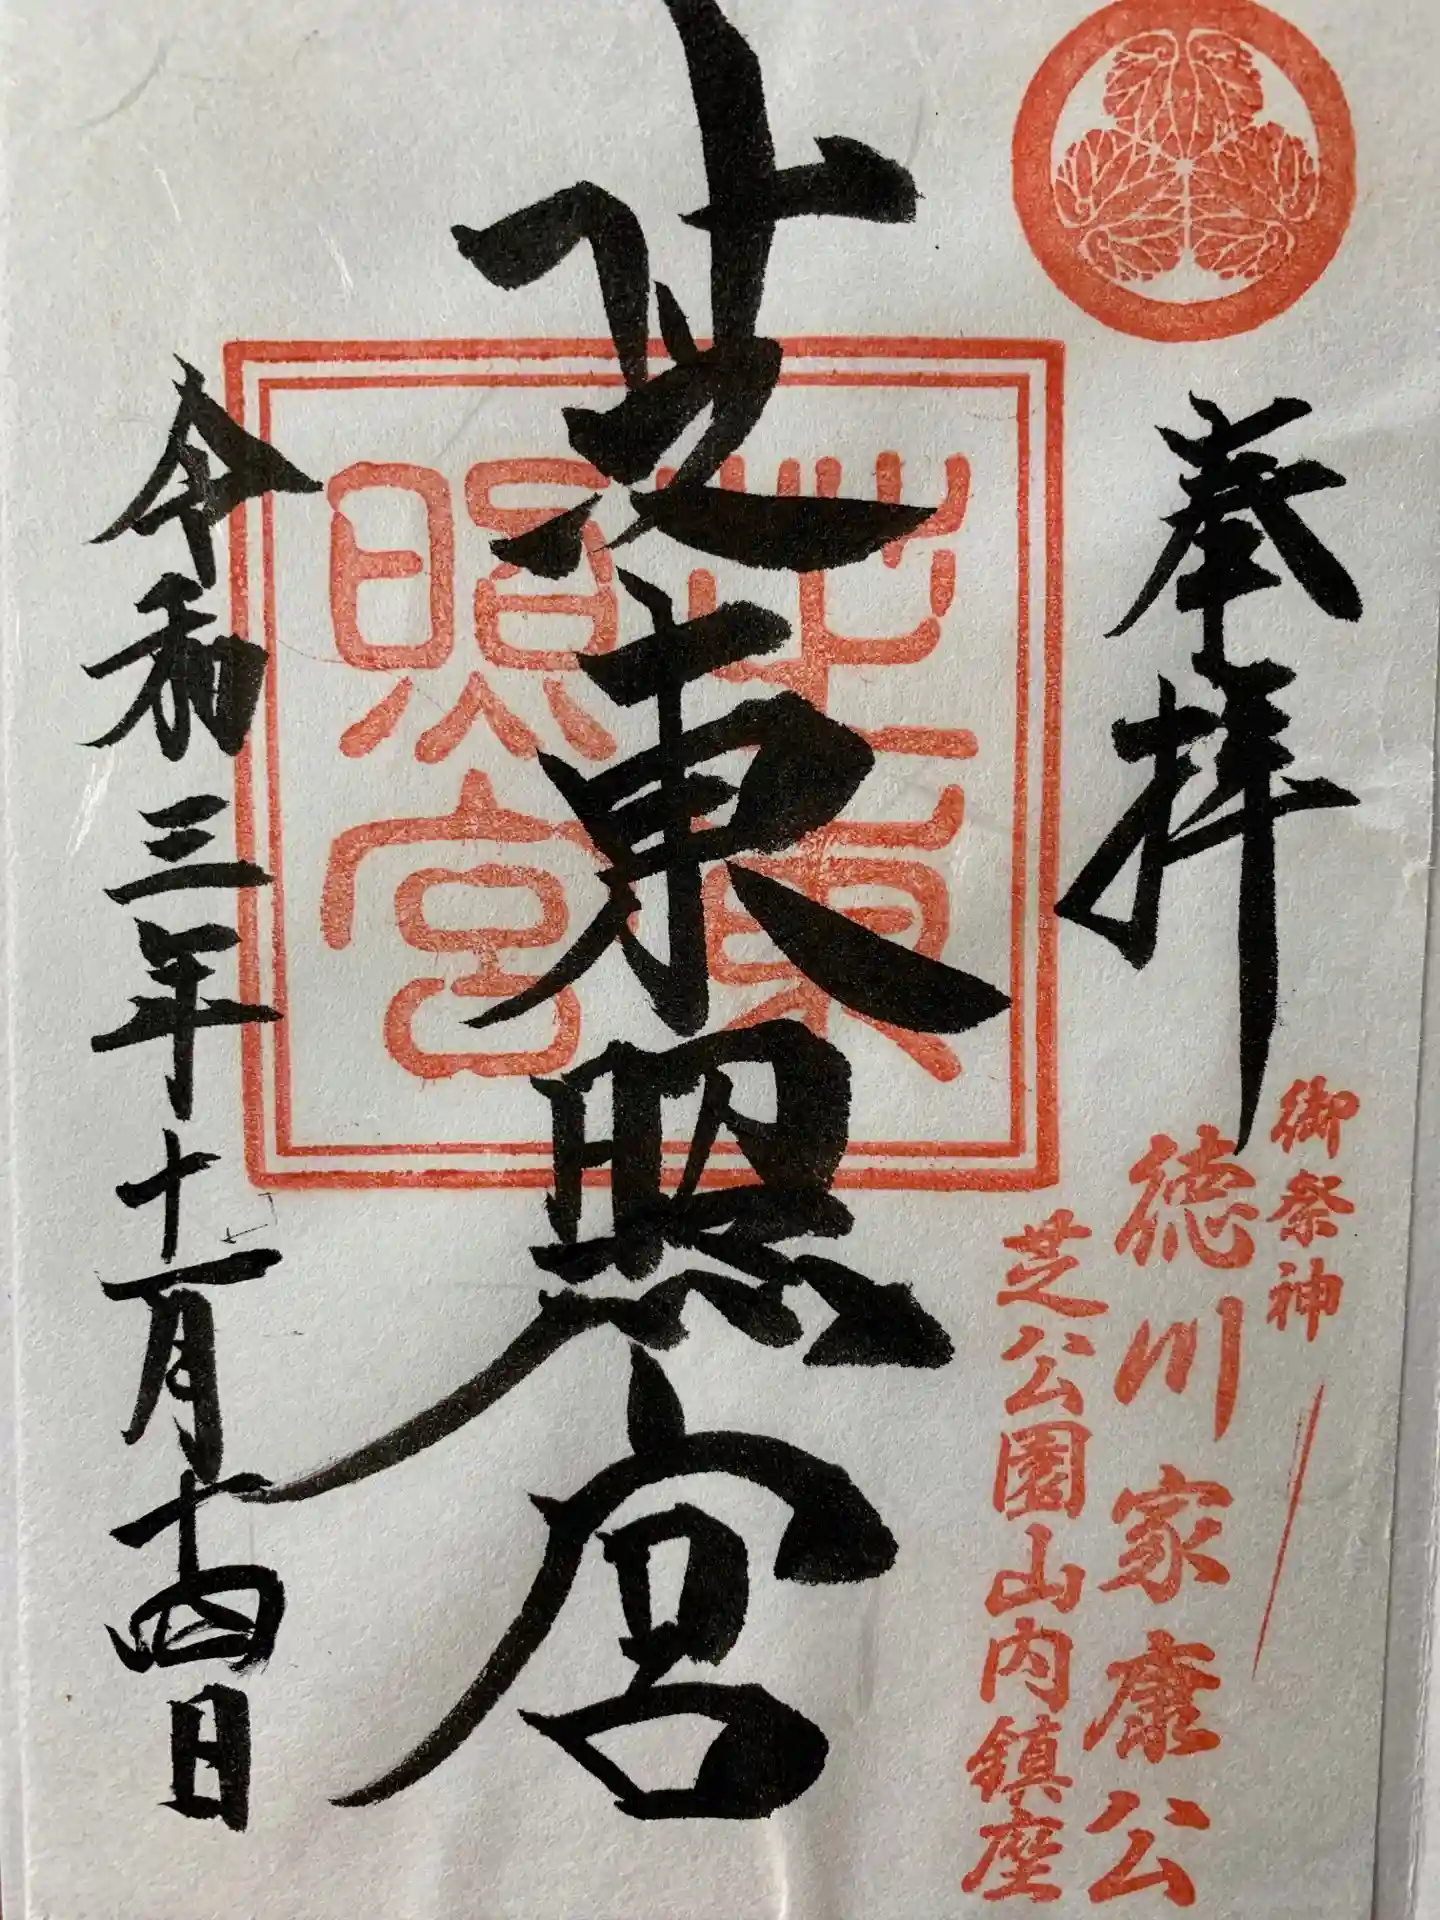 奉拝
御祭神
徳川家康公
芝公園山内鎮座
芝東照宮
芝東
照宮
令和三年十一月十四日